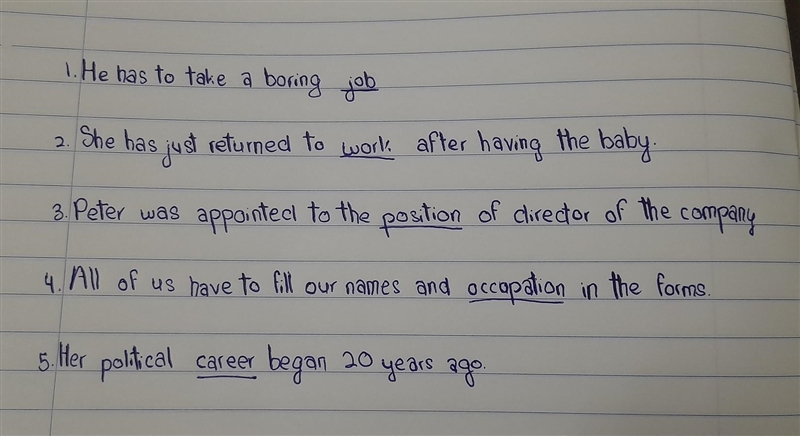 1. He has to take a boring job
2. She has just returned to work after having the baby.
3. Peter was appointed to the position of director of the company
4. All of us have to fill our names and occapation in the forms.
5. Her political career began 20 years ago.